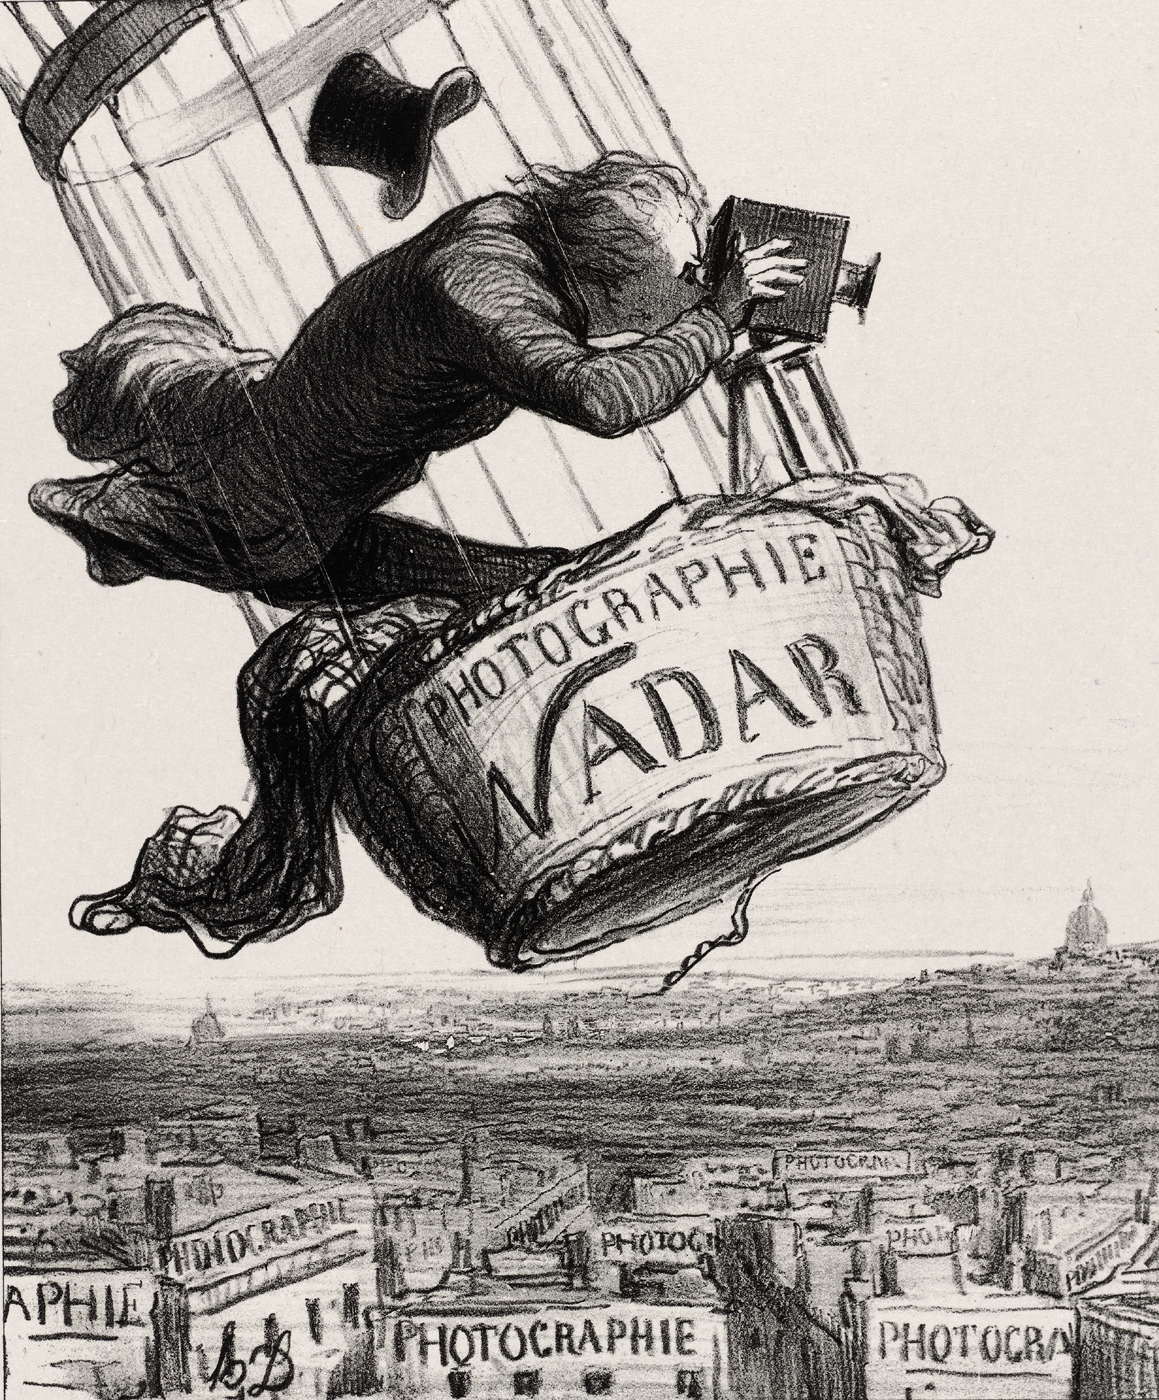 PHOTOGRAPHIE
NADAR
PHOTOGRA
PHOTOGRAPHIE
PHOTOG
PHOT
APHIE
PHOTOGRAPHIE
PHOTOGRA
h.D.